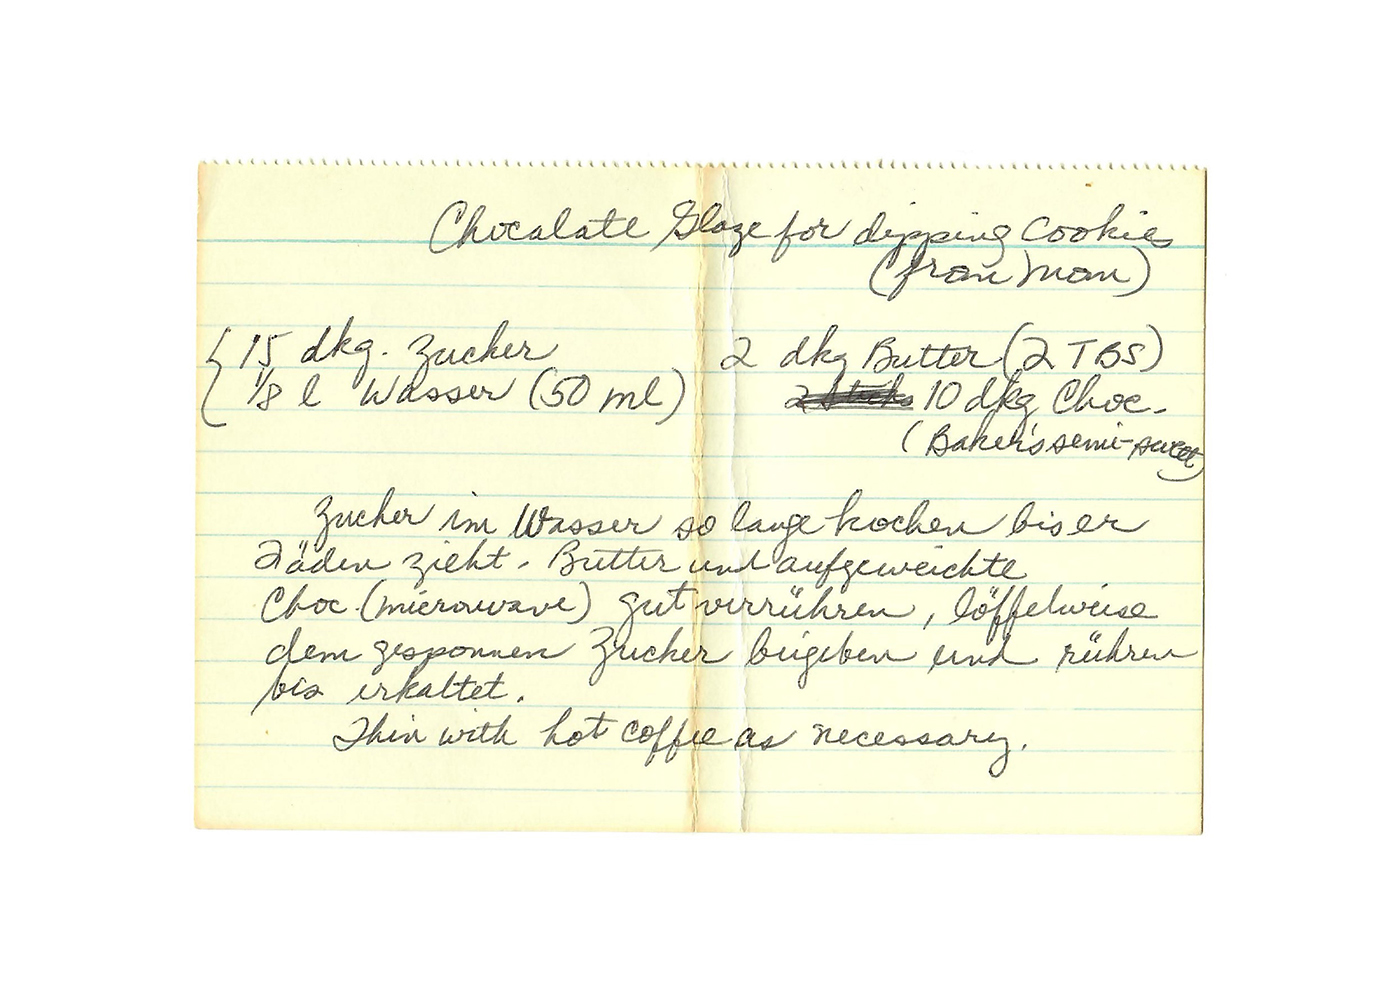 Chocalate Glaze for dipping Cookies
(from Mom)
15 dkg. Zucker
1/8 l Wasser (50 ml)
2 dkg Butter (2 TBS)
10 dkg Choc.
(Baker's semi-sweet)
Zucker im Wasser so lange kochen bis er
Fäden zieht. Butter und aufgeweichte
Choc (microwave) gut verrühren, löffelweise
dem gesponnen Zucker beigeben und rühren
bis erkaltet.
Thin with hot coffee as necessary.